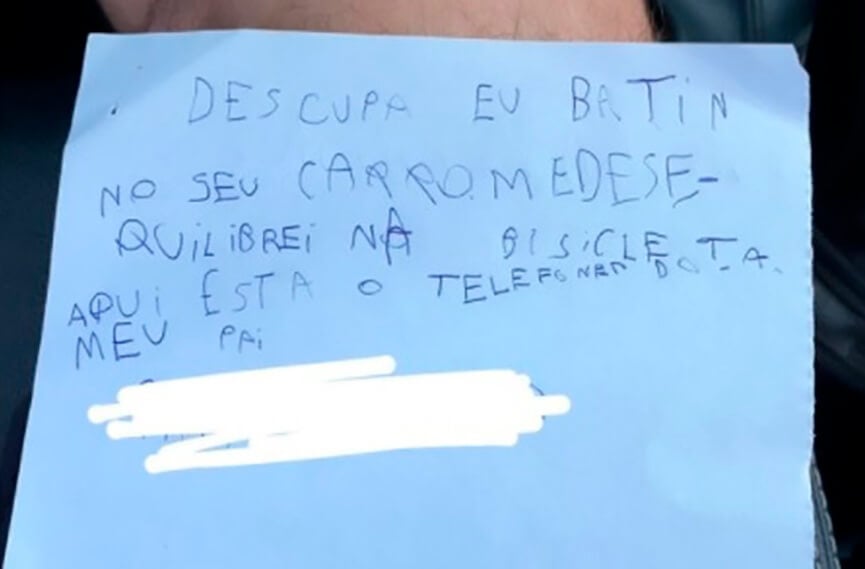 DESCUPA EU BATIN
NO SEU CARRO.MEDESE-
QUILIBREI NA BISICLETA.
AQUI ESTA O TELEFONER DO
MEU PAI